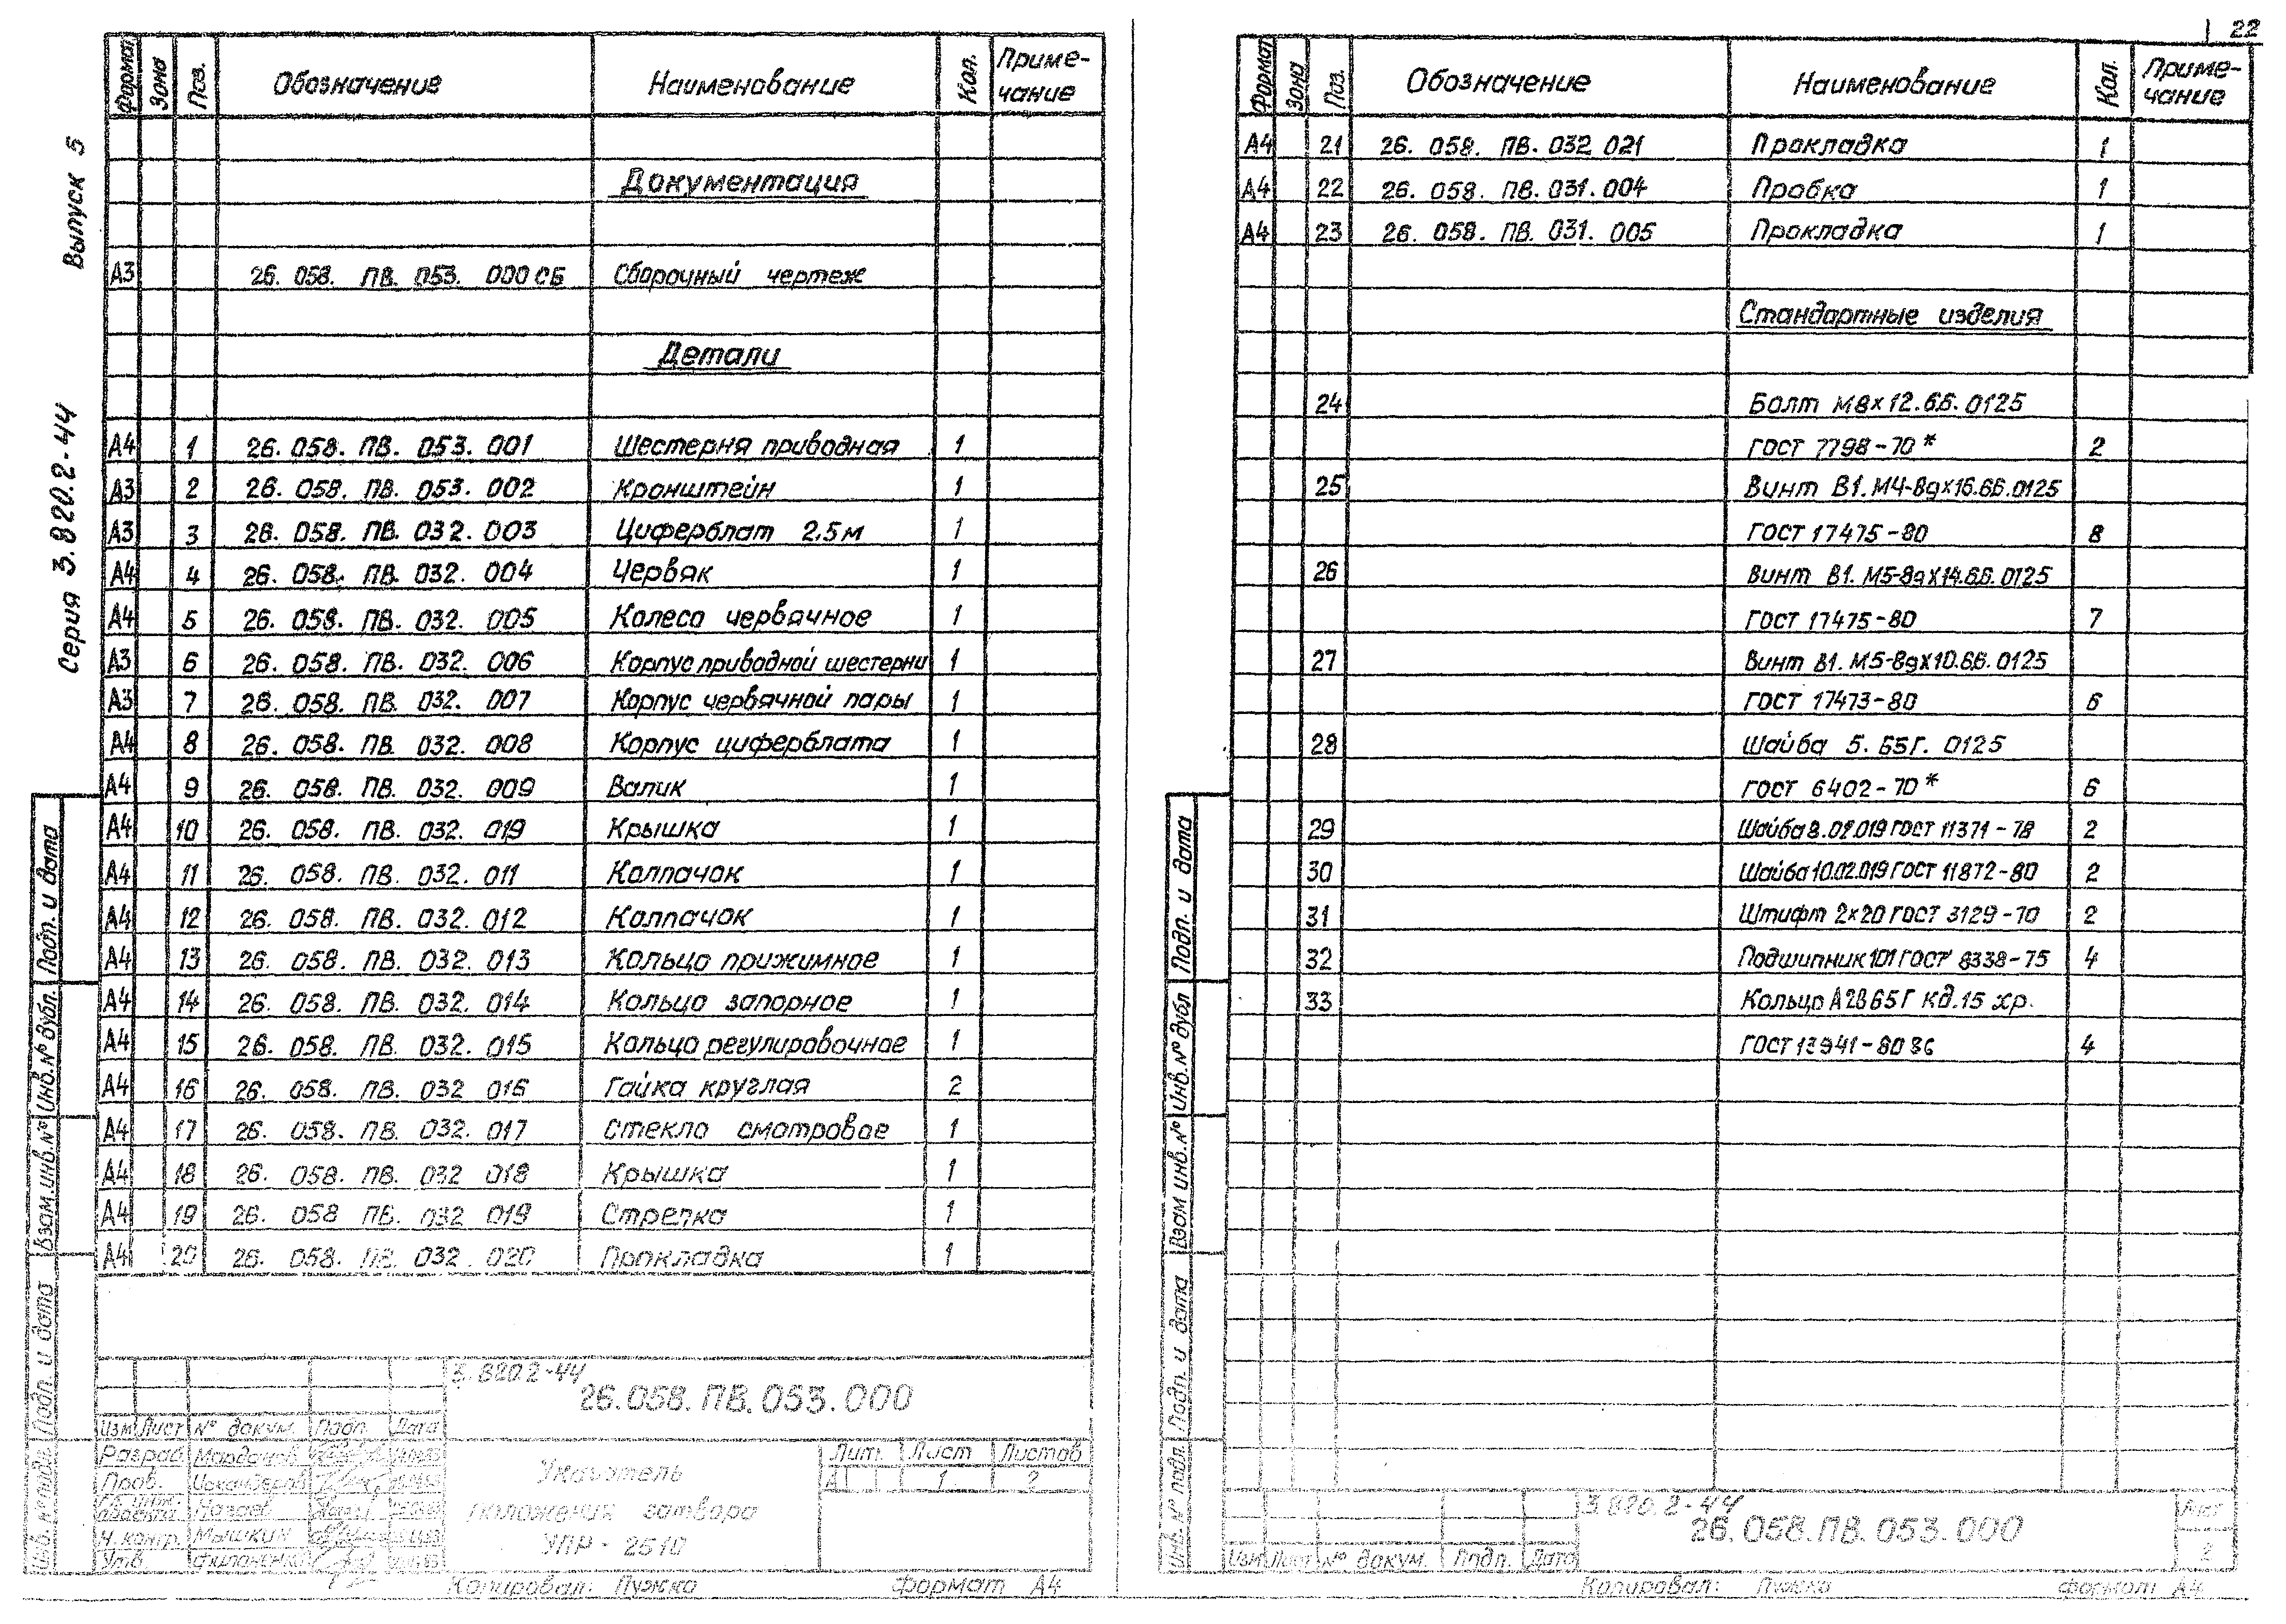 22
Серия 3.820.2-44 Выпуск 5
Формат Зона Поз. Обозначение Наименование Кол. Приме-чание
Документация
А3 26. 058. ПВ. 053. 000 СБ Сборочный чертеж
Детали
А4 1 26. 058. ПВ. 053. 001 Шестерня приводная 1
А3 2 26. 058. ПВ. 053. 002 Кронштейн 1
А3 3 26. 058. ПВ. 032. 003 Циферблат 2,5 м 1
А4 4 26. 058. ПВ. 032. 004 Червяк 1
А4 5 26. 058. ПВ. 032. 005 Колесо червячное 1
А3 6 26. 058. ПВ. 032. 006 Корпус приводной шестерни 1
А3 7 26. 058. ПВ. 032. 007 Корпус червячной пары 1
А4 8 26. 058. ПВ. 032. 008 Корпус циферблата 1
А4 9 26. 058. ПВ. 032. 009 Валик 1
А4 10 26. 058. ПВ. 032. 019 Крышка 1
А4 11 26. 058. ПВ. 032. 011 Колпачок 1
А4 12 26. 058. ПВ. 032. 012 Колпачок 1
А4 13 26. 058. ПВ. 032. 013 Кольцо прижимное 1
А4 14 26. 058. ПВ. 032. 014 Кольцо запорное 1
А4 15 26. 058. ПВ. 032. 015 Кольцо регулировочное 1
А4 16 26. 058. ПВ. 032 016 Гайка круглая 2
А4 17 26. 058. ПВ. 032. 017 Стекло смотровое 1
А4 18 26. 058. ПВ. 032 018 Крышка 1
А4 19 26. 058 ПВ. 032 019 Стрелка 1
А4 20 26. 058. ПВ. 032. 020 Прокладка 1
Подп. и дата
Инв. № дубл.
Взам. инв. №
Подп. и дата
Инв. № подл.
3.820.2-44
26.058.ПВ.053.000
Изм Лист № докум. Подп. Дата
Разраб
Пров.
Н. контр. Мышкин
Утв.
Указатель
положения затвора
УПР - 2510
Лит. Лист Листов
А 1 2
Копировал: Пужко Формат А4
Формат Зона Поз. Обозначение Наименование Кол. Приме-чание
А4 21 26. 058. ПВ. 032 021 Прокладка 1
А4 22 26. 058. ПВ. 031. 004 Пробка 1
А4 23 26. 058. ПВ. 031. 005 Прокладка 1
Стандартные изделия
24 Болт М8×12.66.0125
ГОСТ 7798-70* 2
25 Винт В1. М4-8g×16.66.0125
ГОСТ 17475-80 8
26 Винт В1. М5-8g×14.66.0125
ГОСТ 17475-80 7
27 Винт В1. М5-8g×10.66.0125
ГОСТ 17473-80 6
28 Шайба 5. 65Г. 0125
ГОСТ 6402-70* 6
29 Шайба 8.02.019 ГОСТ 11371-78 2
30 Шайба 10.02.019 ГОСТ 11872-80 2
31 Штифт 2×20 ГОСТ 3129-70 2
32 Подшипник 101 ГОСТ 8338-75 4
33 Кольцо А28 65Г кд.15 хр.
ГОСТ 13941-80 4
Подп. и дата
Инв. № дубл
Взам инв. №
Подп. и дата
Инв. № подл.
3.820.2-44
26.058.ПВ.053.000
Изм Лист № докум. Подп. Дата
Лист
2
Копировал: Пужко Формат А4